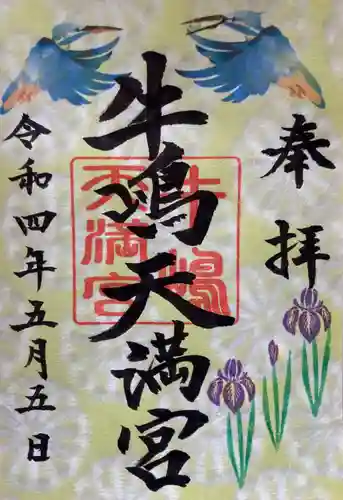 奉拝
牛嶋天満宮
令和四年五月五日
牛嶋天満宮